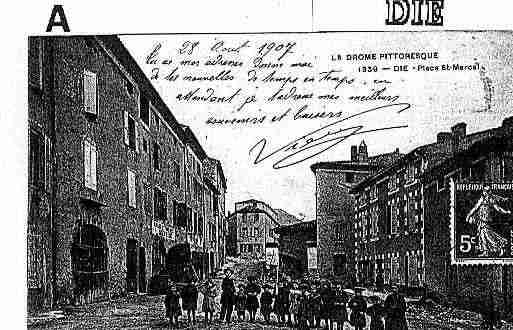 A
DIE
28 Août 1907
LA DROME PITTORESQUE
1339 — DIE - Place St-Marcel
Tu as mon adresse donne moi
de tes nouvelles de temps en temps. en
attendant je t'adresse mes meilleurs
souvenirs et baisers
REPUBLIQUE FRANÇAISE
5c